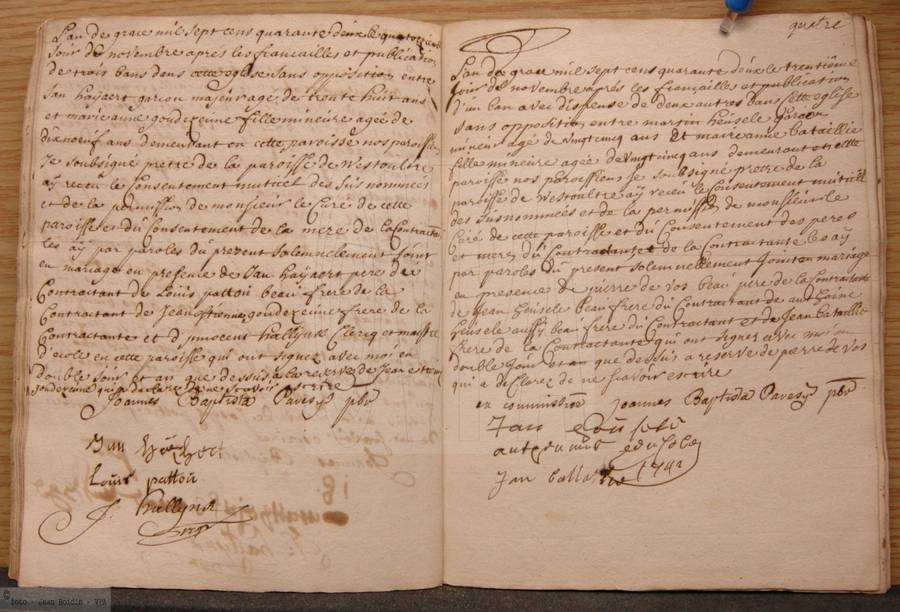 L'an de grace mil sept cens quarante deux le quatorzieme
jour de novembre aprés les fiancailles et publication
de trois bans dans cette eglise sans opposition entre
Jan haÿaert garcon majeur agé de trente huit ans
et marie anne goudezeune fille mineure agée de
dixnoeuf ans demeurant en cette paroisse nos paroissiens
Je soubsigné pretre de la paroisse de Westoultre
aÿ receu le Consentement mutuel des sus nommées
et de la permission de monsieur le Curé de cette
paroisse et du Consentement de la mere de la Contracta
les aÿ par paroles du prezent solemnelement joint
en mariage en presence de Jan haÿaert pere du
Contractant de Loüis pattoü beau frere de la
Contractante de Jean goudezeune frere de la
Contractante et d'jnnocent hallÿnk Clercq et maistre
d'ecole en cette paroisse qui ont signez avec moi en
double jour et an que dessus a la reserve de Jean
goudezeune qui a declarez de ne scavoir escrire
Joannes Baptista Paresÿs pbr
Jan
Louis pattou
J. hallynk
quatre
L'an de grace mil sept cens quarante deux le trentiême
jour de novembre aprés les fiançailles et publication
d'un ban avec dispense de deux autres dans cette eglise
sans opposition entre martin heusele garcon
mineur agé de vingtcinq ans et marie anne bataillie
fille mineure agée de vingtcinq ans demeurant en cette
paroisse nos paroissiens je soubsigné pretre de la
paroisse de Westoultre aÿ receu le Consentement mutuël
des susnommées et de la permission de monsieur le
Curé de cette paroisse et du Consentement des peres
et meres du Contractant et de la Contractante les aÿ
par paroles du present solemnellement joint en mariage
en presence de pierre de vos beau pere de la Contractante
de Jean heusele beau frere du Contractant de anthoine
heusele aussi beau frere du Contractant et de Jean bataille
frere de la Contractante qui ont signez avec moi en
double jour et an que dessus a reserve de pierre de vos
qui a declarez de ne scavoir escrire
en commission Joannes Baptista Paresÿs pbr
Jan
1742
Jan
© foto - Jean Boidin - VPA